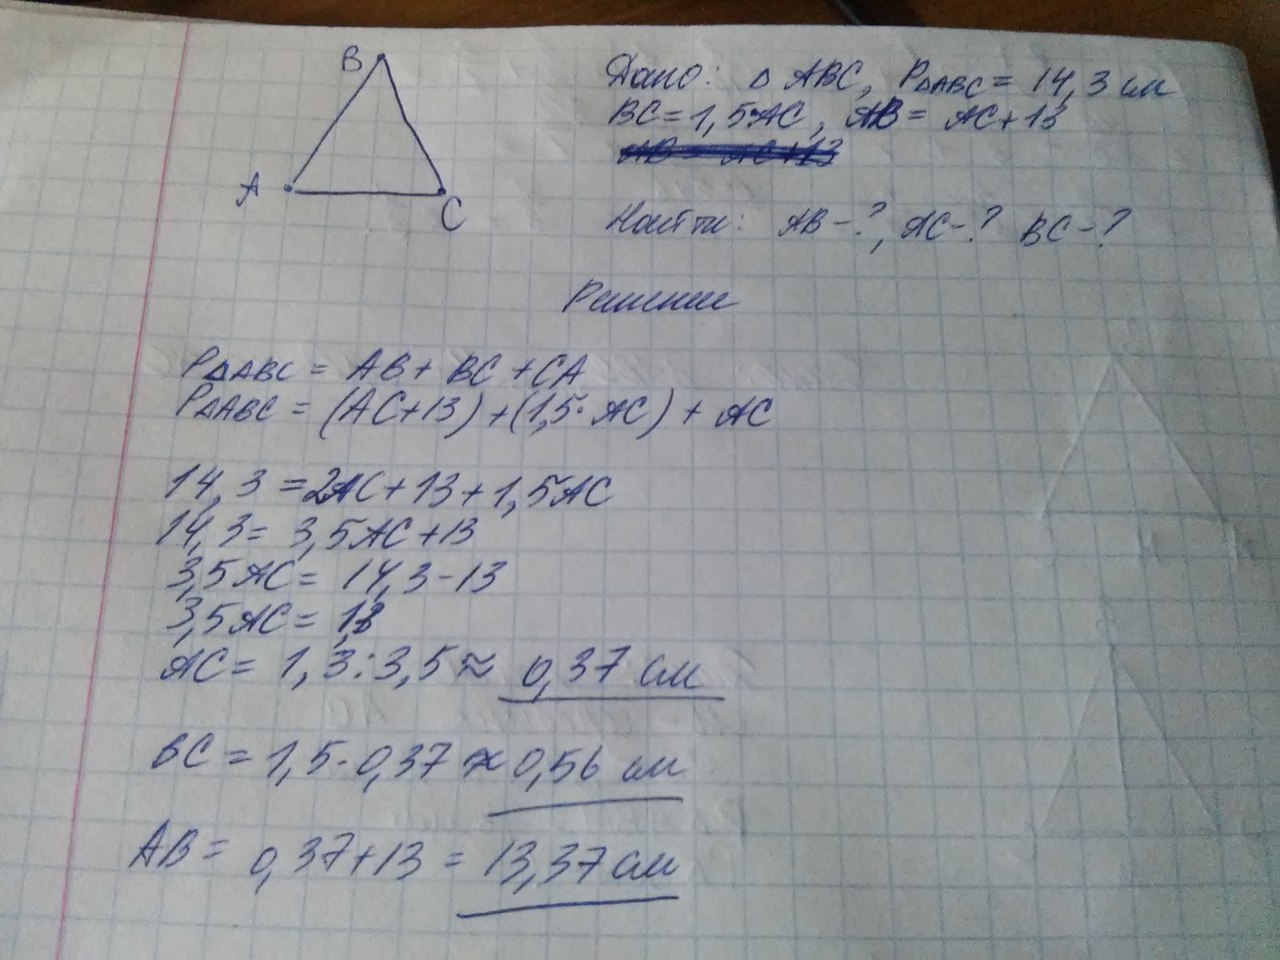 B
A
C
Дано: △ ABC, P△ABC = 14,3 см
BC = 1,5AC, AB = AC + 13
AB = AC + 13
Найти: AB - ?, AC - ? BC - ?
Решение
P△ABC = AB + BC + CA
P△ABC = (AC + 13) + (1,5 · AC) + AC
14,3 = 2AC + 13 + 1,5AC
14,3 = 3,5AC + 13
3,5AC = 14,3 - 13
3,5AC = 1,3
AC = 1,3 : 3,5 ≈ 0,37 см
BC = 1,5 · 0,37 ≈ 0,56 см
AB = 0,37 + 13 = 13,37 см